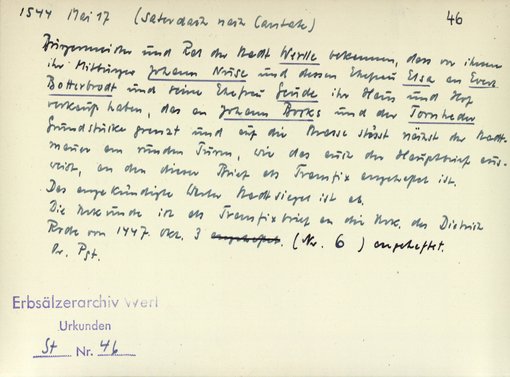 1544 Mai 17 (Saterdach nach Cantate) 46
Bürgermeister und Rat der Stadt Werlle bekennen, dass vor ihnen
ihr Mitbürger Johann Nuse und dessen Ehefrau Elsa an Evert
Botterbrodt und seine Ehefrau Geude ihr Haus und Hof
verkauft haben, das an Johann Borks und der Tornheder
Grundstücke grenzt und auf die Strasse stösst nächst der Stadt-
mauer am runden Turm, wie das auch der Hauptbrief aus-
weist, an den dieser Brief als Transfix angeheftet ist.
Das angekündigte Werler Stadtsiegel ist ab.
Die Urkunde ist als Transfixbrief an die Urk. des Dietrich
Rode von 1447 Okt. 3 angeheftet. (Nr. 6) angeheftet.
Or. Pgt.
Erbsälzerarchiv Werl
Urkunden
St Nr. 46